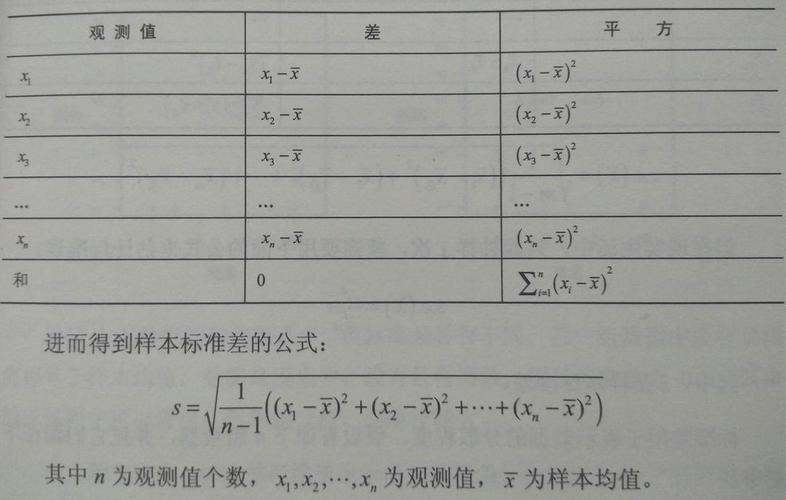 观测值 差 平方
x₁ x₁ − x̄ (x₁ − x̄)²
x₂ x₂ − x̄ (x₂ − x̄)²
x₃ x₃ − x̄ (x₃ − x̄)²
... ... ...
xₙ xₙ − x̄ (xₙ − x̄)²
和 0 ∑ⁿᵢ₌₁(xᵢ − x̄)²
进而得到样本标准差的公式：
s = √(1/(n−1) ((x₁ − x̄)² + (x₂ − x̄)² + ⋯ + (xₙ − x̄)²))
其中 n 为观测值个数，x₁,x₂,⋯,xₙ 为观测值，x̄ 为样本均值。